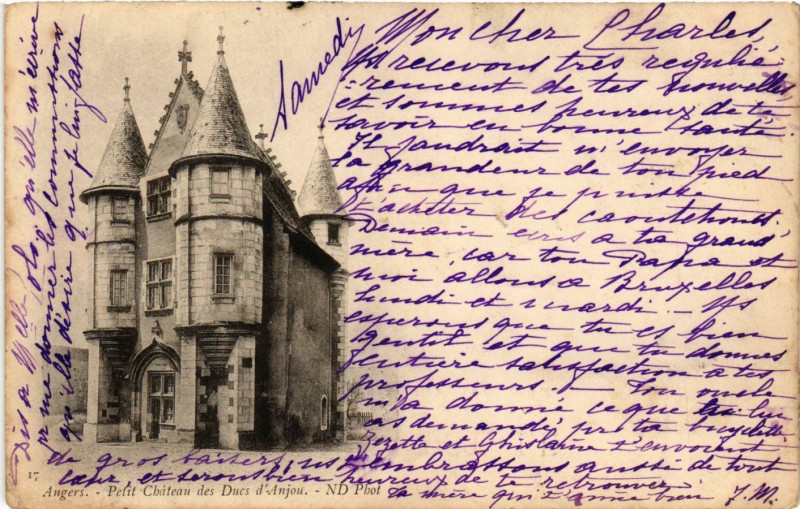 Samedi
Mon cher Charles,
Ns recevons très réguliè-
=rement de tes nouvelles,
et sommes heureux de te
savoir en bonne santé.
Il faudrait m'envoyer
la grandeur de ton pied
afin que je puisse
t'acheter des caoutchoucs.
Demain écris à ta grand'
mère, car ton Papa et
moi allons à Bruxelles
lundi et mardi. - Ns
espérons que tu es bien
gentil et que tu donnes
entière satisfaction à tes
professeurs. Ton oncle
m'a donné ce que lui
as demandé pr ta bicyclette
Zezette et Ghislaine t'envoient
de gros baisers, ns t'embrassons aussi de tout
cœur, et serons bien heureux de te retrouver.
Ta mère qui t'aime bien J. M.
Dis à Melle qu'elle m'écrive
pr me donner les commissions
qu'elle désire que je lui fasse
17
Angers. - Petit Château des Ducs d'Anjou. - ND Phot